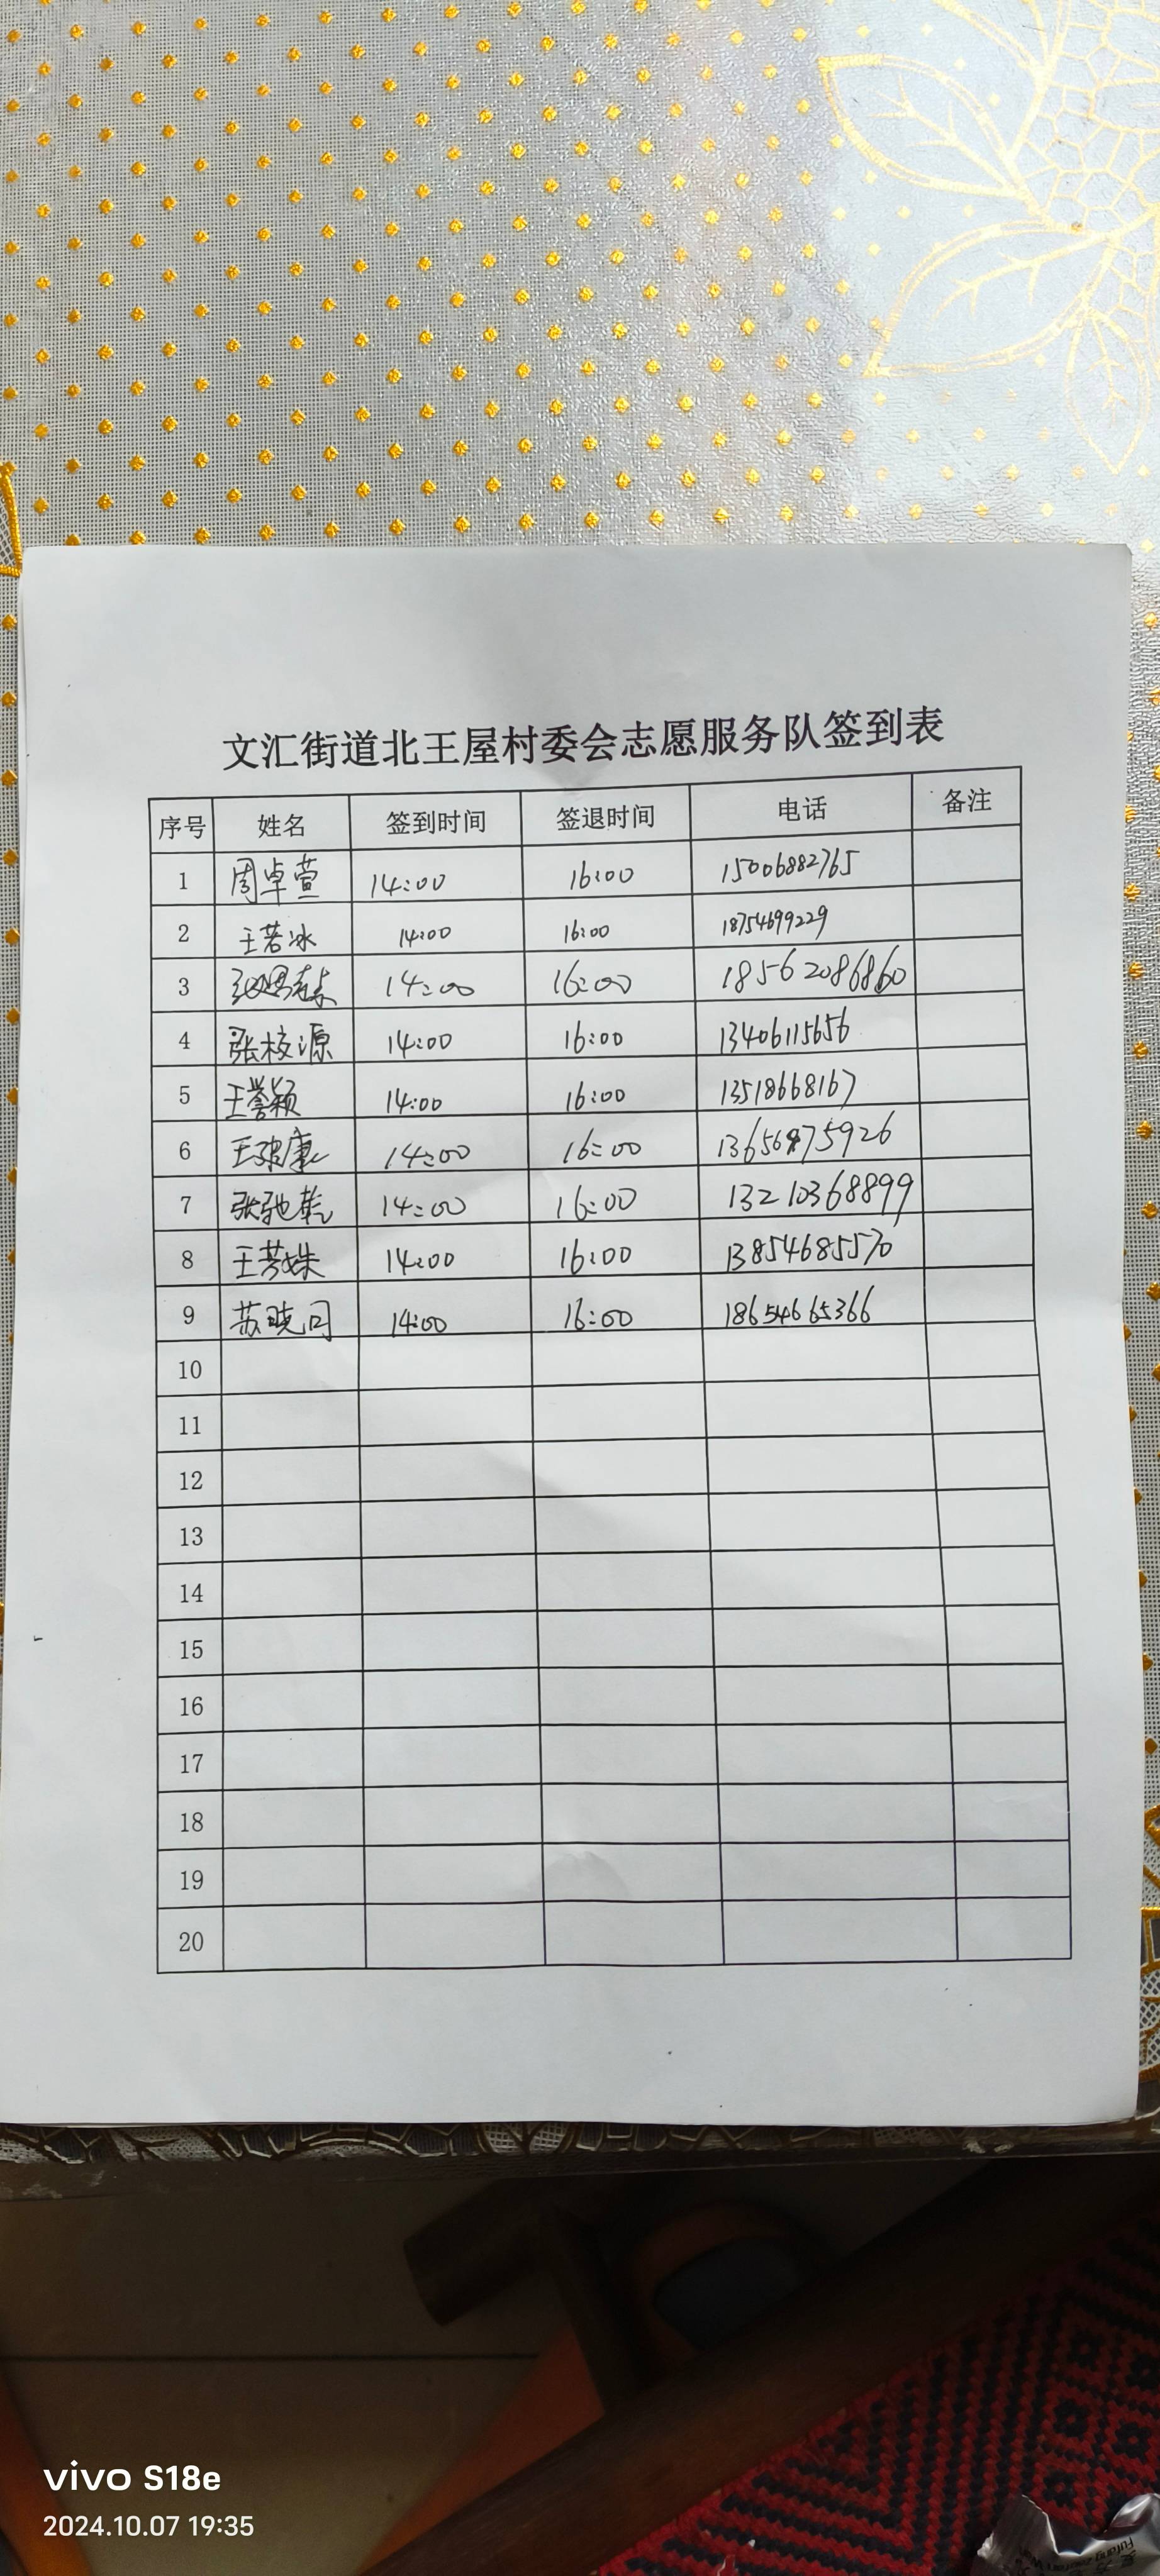 文汇街道北王屋村委会志愿服务队签到表
序号 姓名 签到时间 签退时间 电话 备注
1 周卓萱 14:00 16:00 15006882765
2 王若冰 14:00 16:00 18754699229
3 14:00 16:00 18562086860
4 张校源 14:00 16:00 13406115656
5 王誉颖 14:00 16:00 13518668167
6 14:00 16:00 13656875926
7 张驰乾 14:00 16:00 13210368899
8 王芳姝 14:00 16:00 13854685570
9 苏晓 14:00 16:00 18654665366
10
11
12
13
14
15
16
17
18
19
20
vivo S18e
2024.10.07 19:35